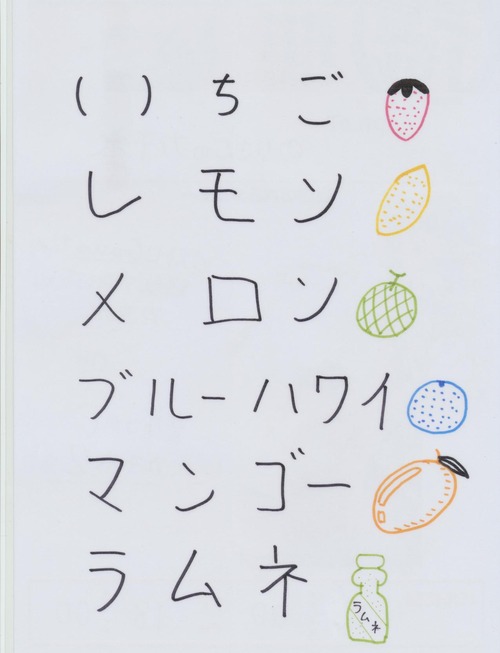 いちご
レモン
メロン
ブルーハワイ
マンゴー
ラムネ
ラムネ